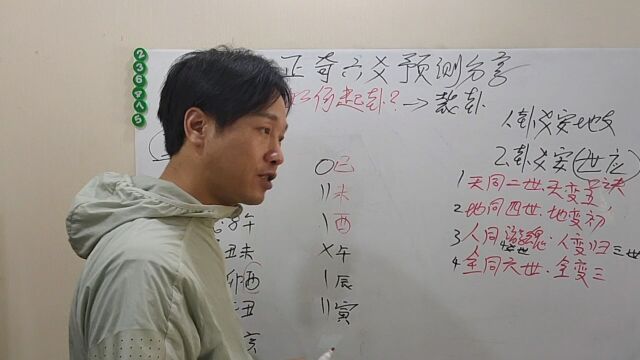 正奇六爻预测分享
何起卦?→装卦
1卦爻安地支
2卦爻安(世应)
1天同二世.天变五
2地同四世.地变初
3人同游魂.人变归三世
4全同六世.全变三
0巳
11未
1酉
X午
1辰
11寅
午
丑未
卯酉
丑
亥
2
3
6